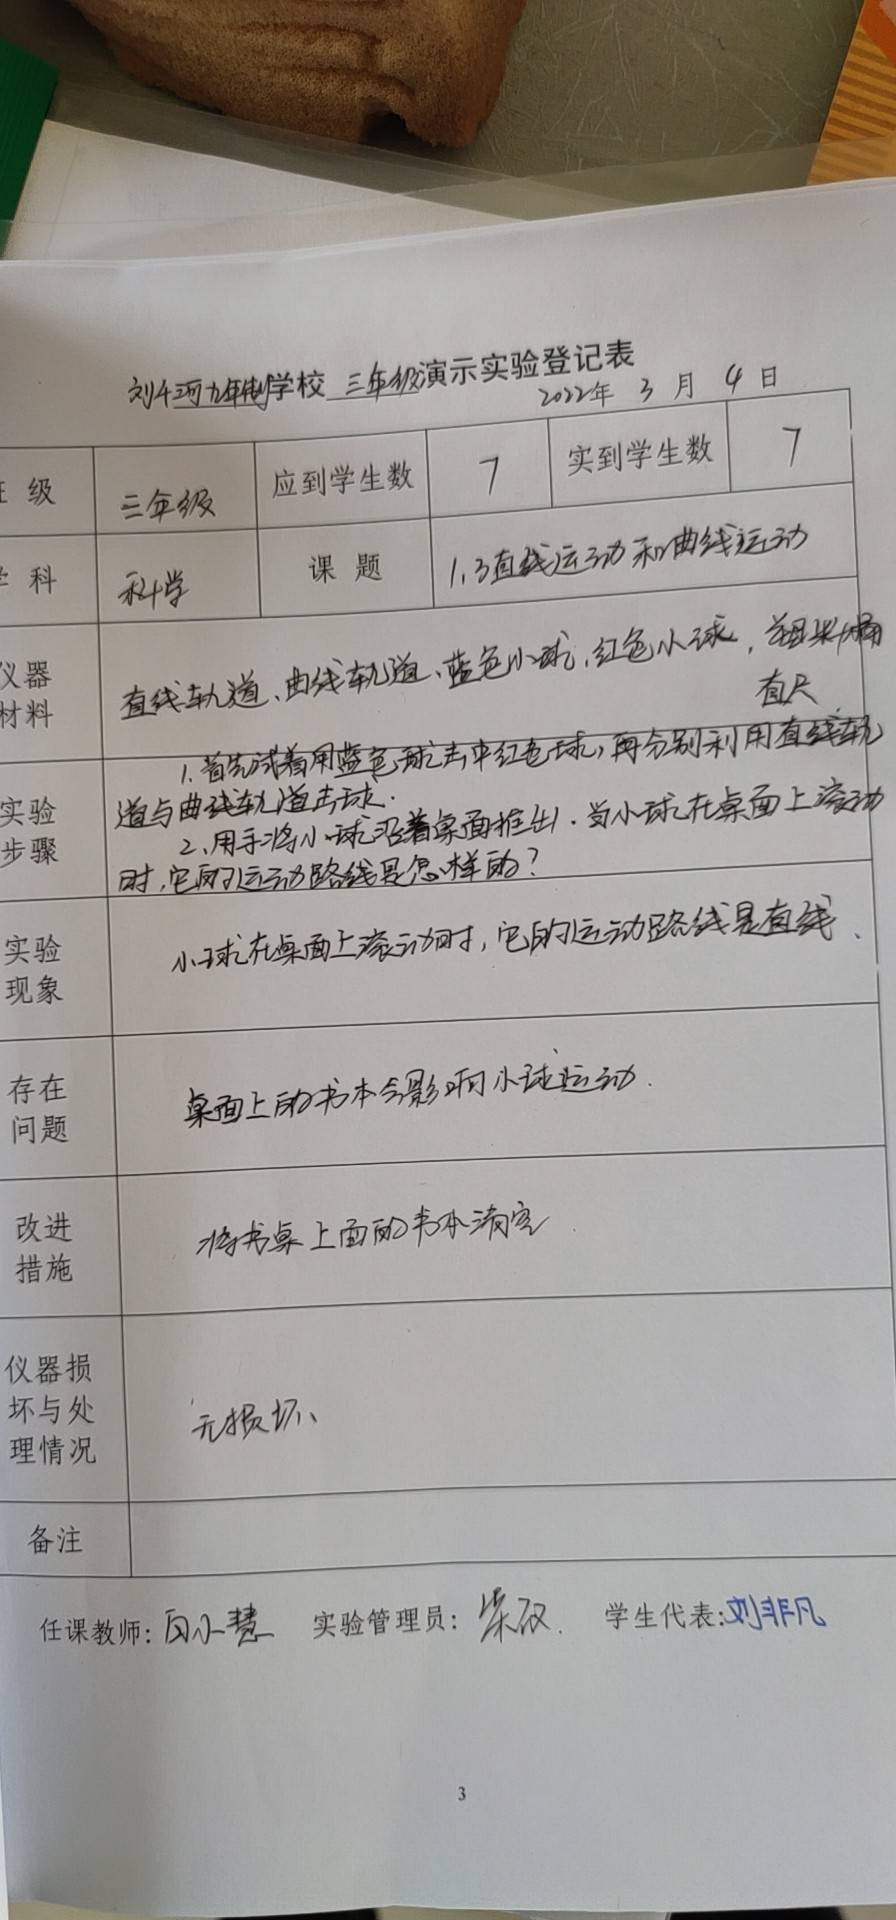 刘千河九年制学校 三年级演示实验登记表
2022年 3 月 4 日
级 三年级 应到学生数 7 实到学生数 7
科 科学 课题 1.3直线运动和曲线运动
仪器材料 直线轨道、曲线轨道、蓝色小球、红色小球、
直尺
实验步骤 1.首先试着用蓝色球击中红色球,再分别利用直线轨
道与曲线轨道击球.
2、用手将小球沿着桌面推出.当小球在桌面上滚动
时,它的运动路线是怎样的?
实验现象 小球在桌面上滚动时,它的运动路线是直线、
存在问题 桌面上的书本会影响小球运动.
改进措施 将书桌上面的书本清空
仪器损坏与处理情况 无损坏、
备注
任课教师:闫小慧 实验管理员: 学生代表:刘非凡
3